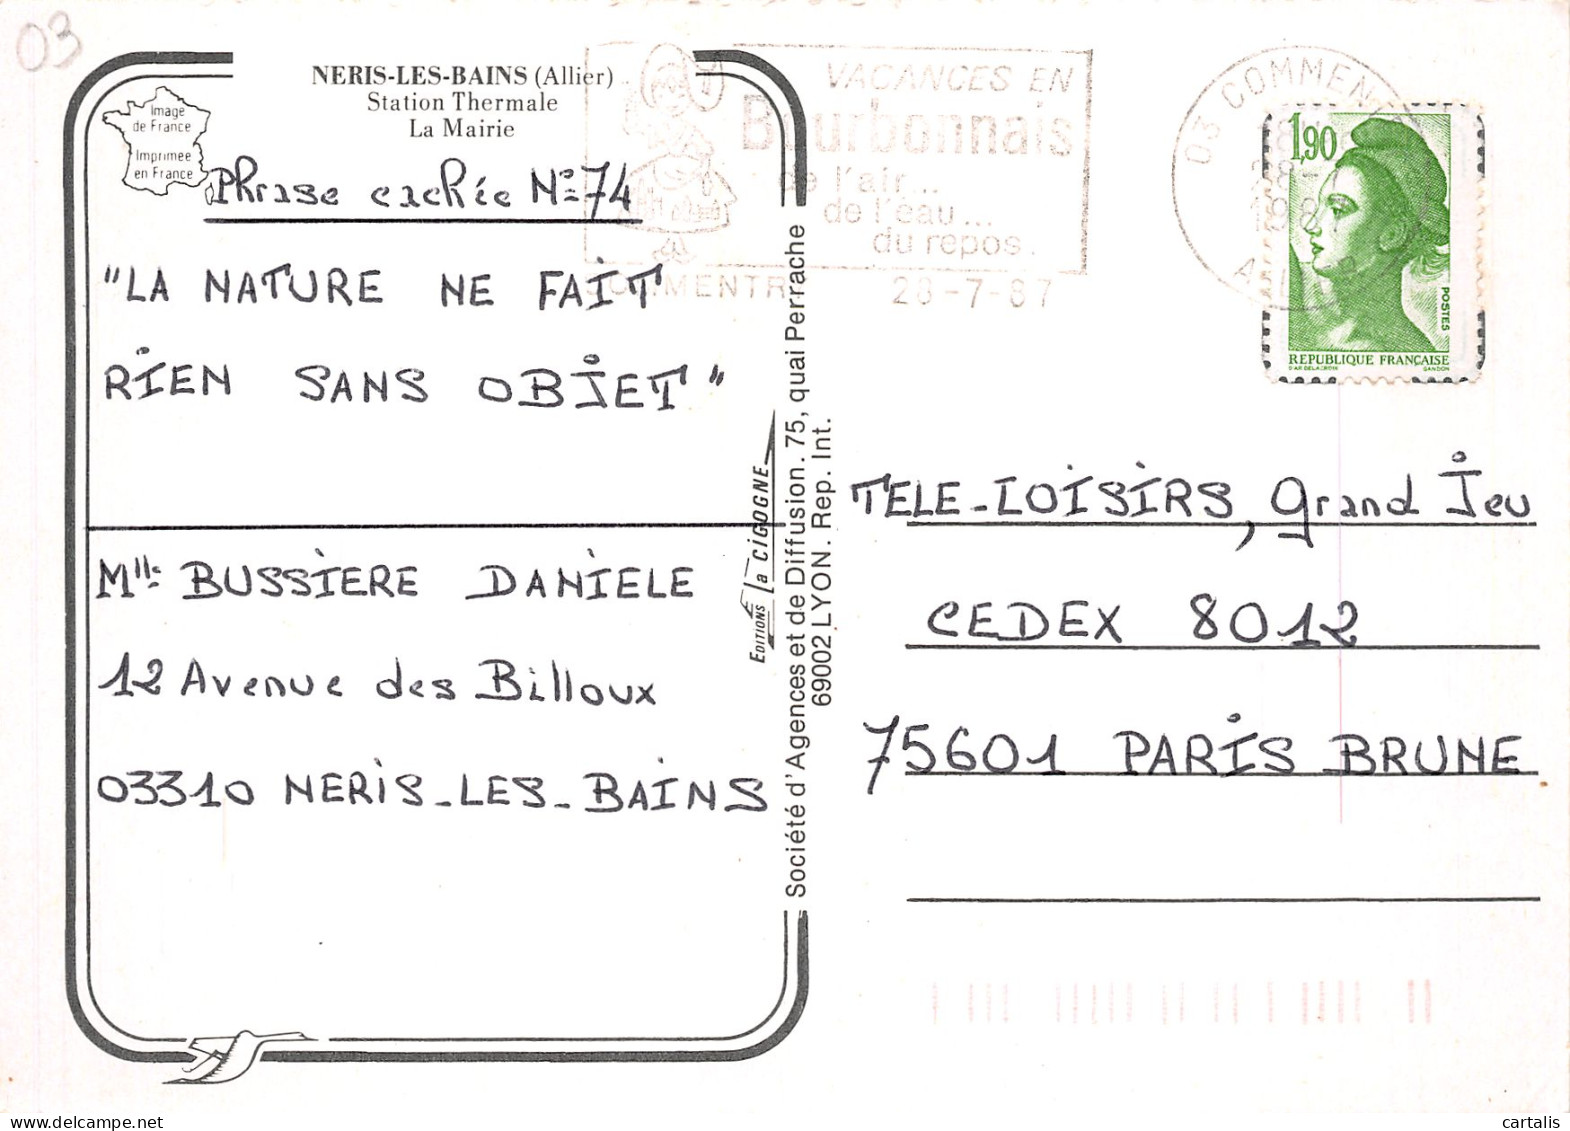 03
NERIS-LES-BAINS (Allier)
Station Thermale
La Mairie
Image
de France
Imprimée
en France
Phrase cachée N° 74
"LA NATURE NE FAIT
RIEN SANS OBJET"
Mlle BUSSIERE DANIELE
12 Avenue des Billoux
03310 NERIS-LES-BAINS
EDITIONS La CIGOGNE
Société d'Agences et de Diffusion. 75, quai Perrache
69002 LYON. Rep. Int.
VACANCES EN
Bourbonnais
de l'air...
de l'eau...
du repos.
28-7-87
03 COMMENTRY
1987
1,90
POSTES
REPUBLIQUE FRANÇAISE
D'AP. DELACROIX GANDON
TELE-LOISIRS, Grand Jeu
CEDEX 8012
75601 PARIS BRUNE
cartalis